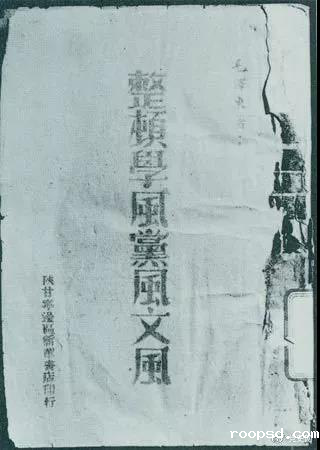 毛澤東著
整頓學風黨風文風
陝甘寧邊區新華書店印行
roopsd.com